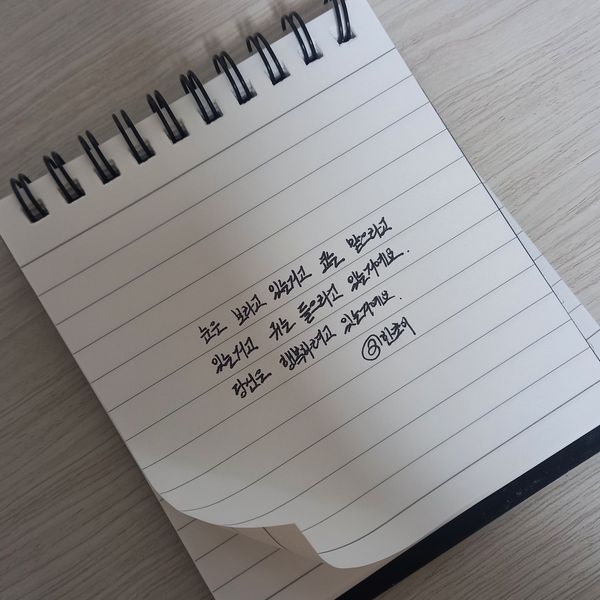 눈은 보라고 있는거고 코는 맡으라고
있는거고 귀는 들으라고 있는거예요.
당신은 행복하려고 있는거예요.